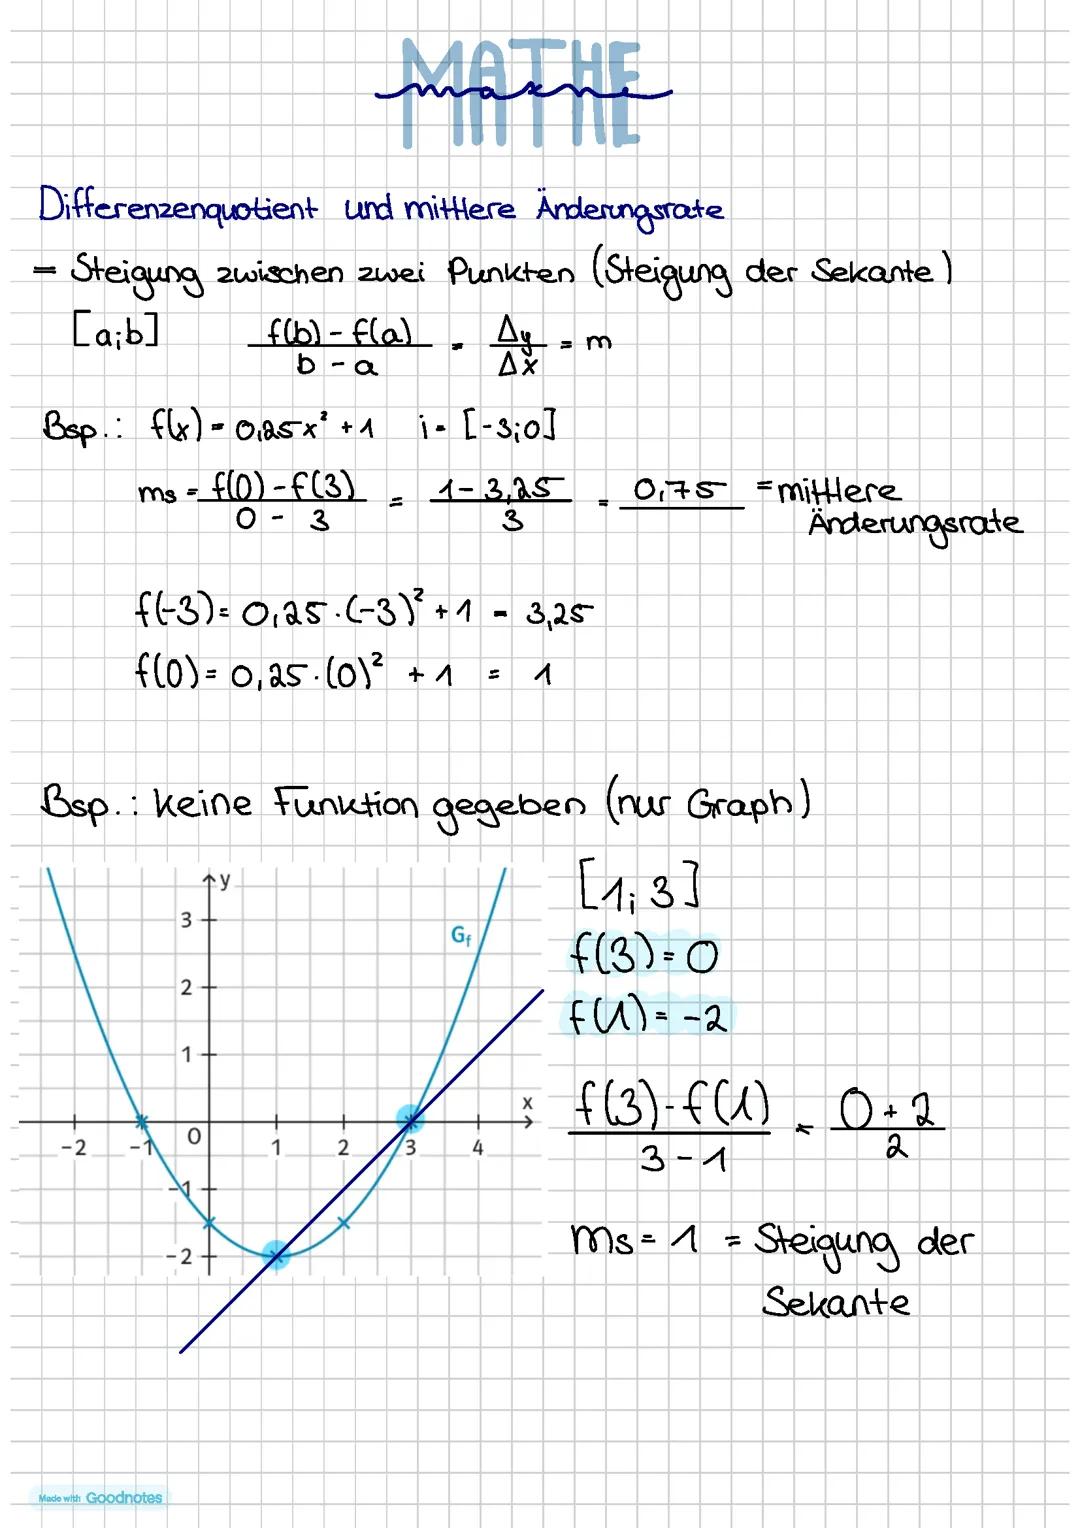 MATHE
Differenzenquotient und mittlere Änderungsrate
= Steigung zwischen zwei Punkten (Steigung der Sekante)
[a;b] f(b) - f(a) / b - a = Δy / Δx = m
Bsp.: f(x) = 0,25x² + 1 i = [-3;0]
ms = f(0) - f(3) / 0 - 3 = 1 - 3,25 / 3 = 0,75 = mittlere
Änderungsrate
f(-3) = 0,25 · (-3)² + 1 = 3,25
f(0) = 0,25 · (0)² + 1 = 1
Bsp.: keine Funktion gegeben (nur Graph)
[1; 3]
f(3) = 0
f(1) = -2
f(3) - f(1) / 3 - 1 = 0 + 2 / 2
ms = 1 = Steigung der
Sekante
y
3
Gf
2
1
x
-2 -1 0 1 2 3 4
-1
-2
Made with Goodnotes